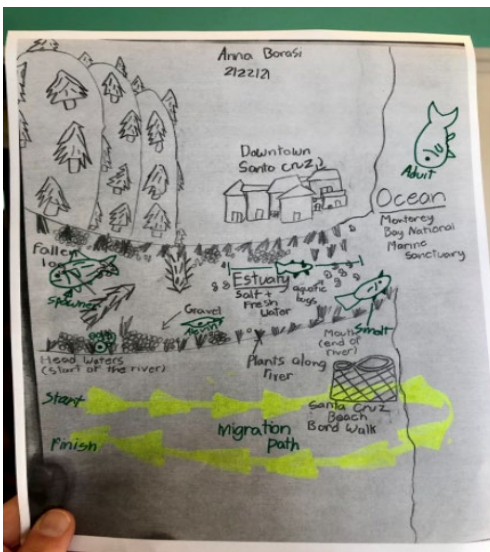 Anna Borasi
2/22/21
Downtown
Santa Cruz
Adult
Ocean
Monterey
Bay National
Marine
Sanctuary
Fallen
log
Spawner
Estuary
Salt +
Fresh
Water
aquatic
bugs
Smolt
Gravel
Alevin
Mouth
(end of
river)
Head Waters
(Start of the river)
Plants along
river
Santa Cruz
Beach
Bord Walk
Start
Migration
Path
Finish